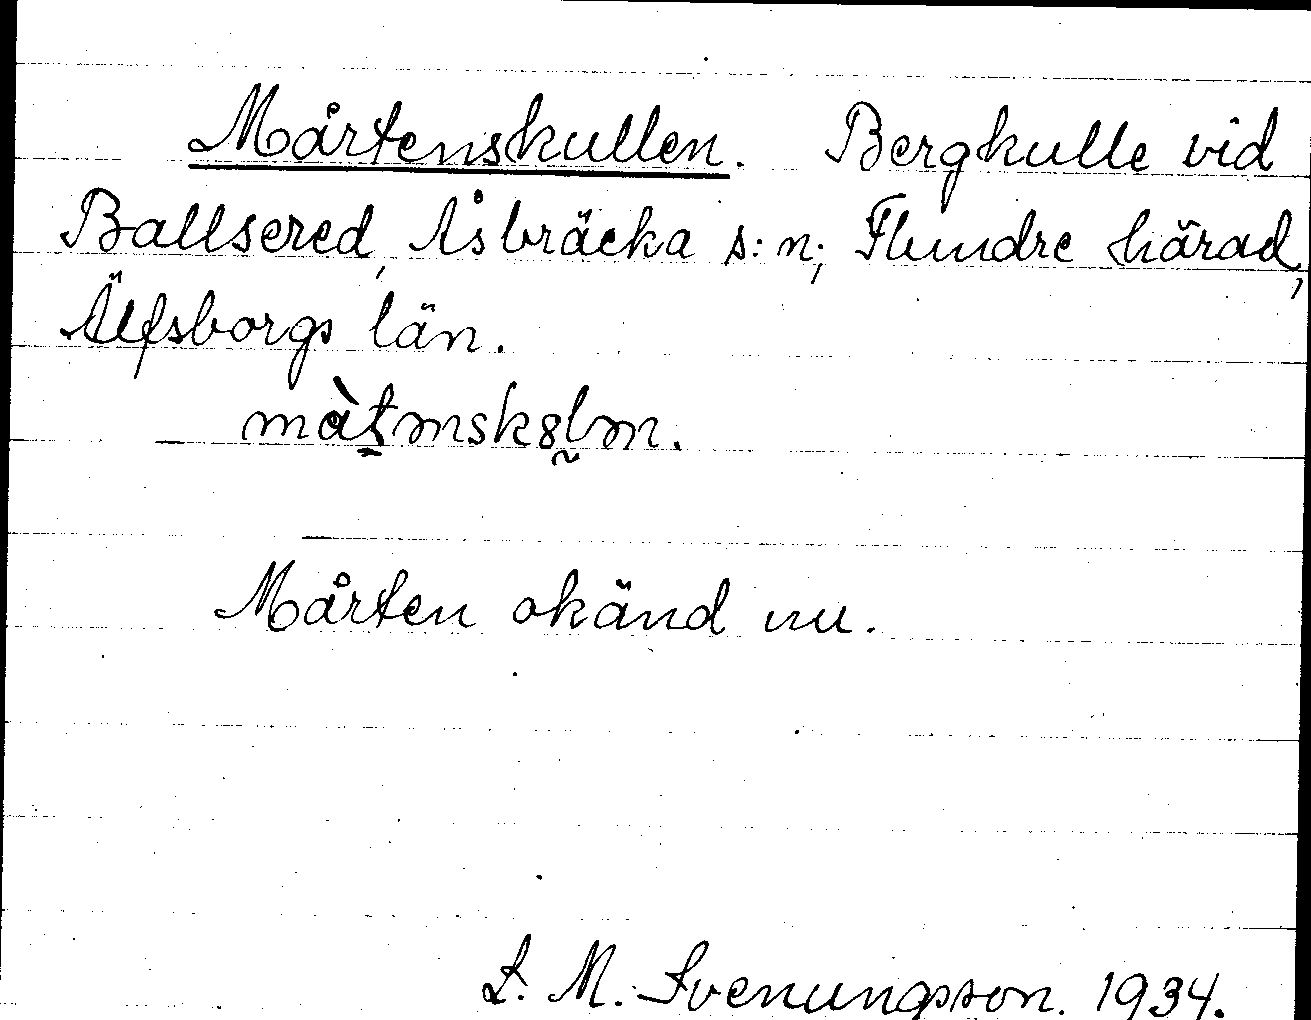 Mårtenskullen. Bergkulle vid
Ballsered, Åsbräcka s:n; Flundre härad,
Älfsborgs län.
Mårten okänd nu.
L. M. Svenungsson. 1934.